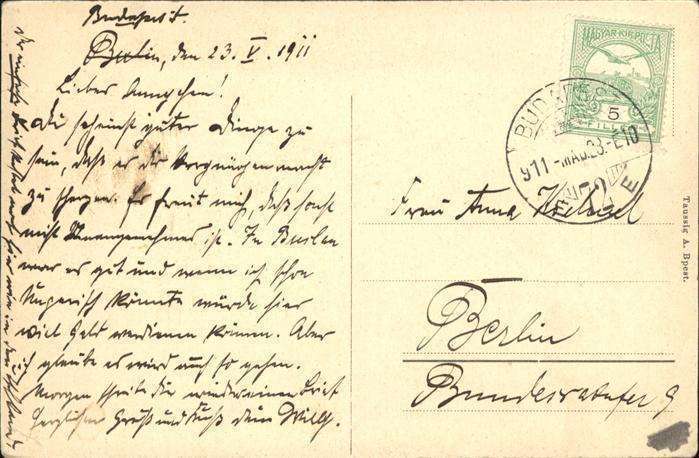 Budapest.
Berlin, den 23. V. 1911
Lieber Annychen!
Du scheinst guter Dinge zu
sein, daß es dir Vergnügen macht
zu scherzen. Es freut mich, daß sonst
nicht Unangenehmes ist. In Breslau
war es gut und wenn ich schon
Ungarisch könnte würde hier
viel Geld verdienen können. Aber
ich glaube es wird auch so gehen.
Morgen schreibe dir wieder einen Brief
herzlichen Gruß und Kuß dein Willy.
MAGYAR KIR. POSTA
5
FILLÉR
BUDAPEST
911 - MÁJ. 23. - E10
72
Frau Anna
Berlin
Bundesratufer 9
Taussig A. Bpest.